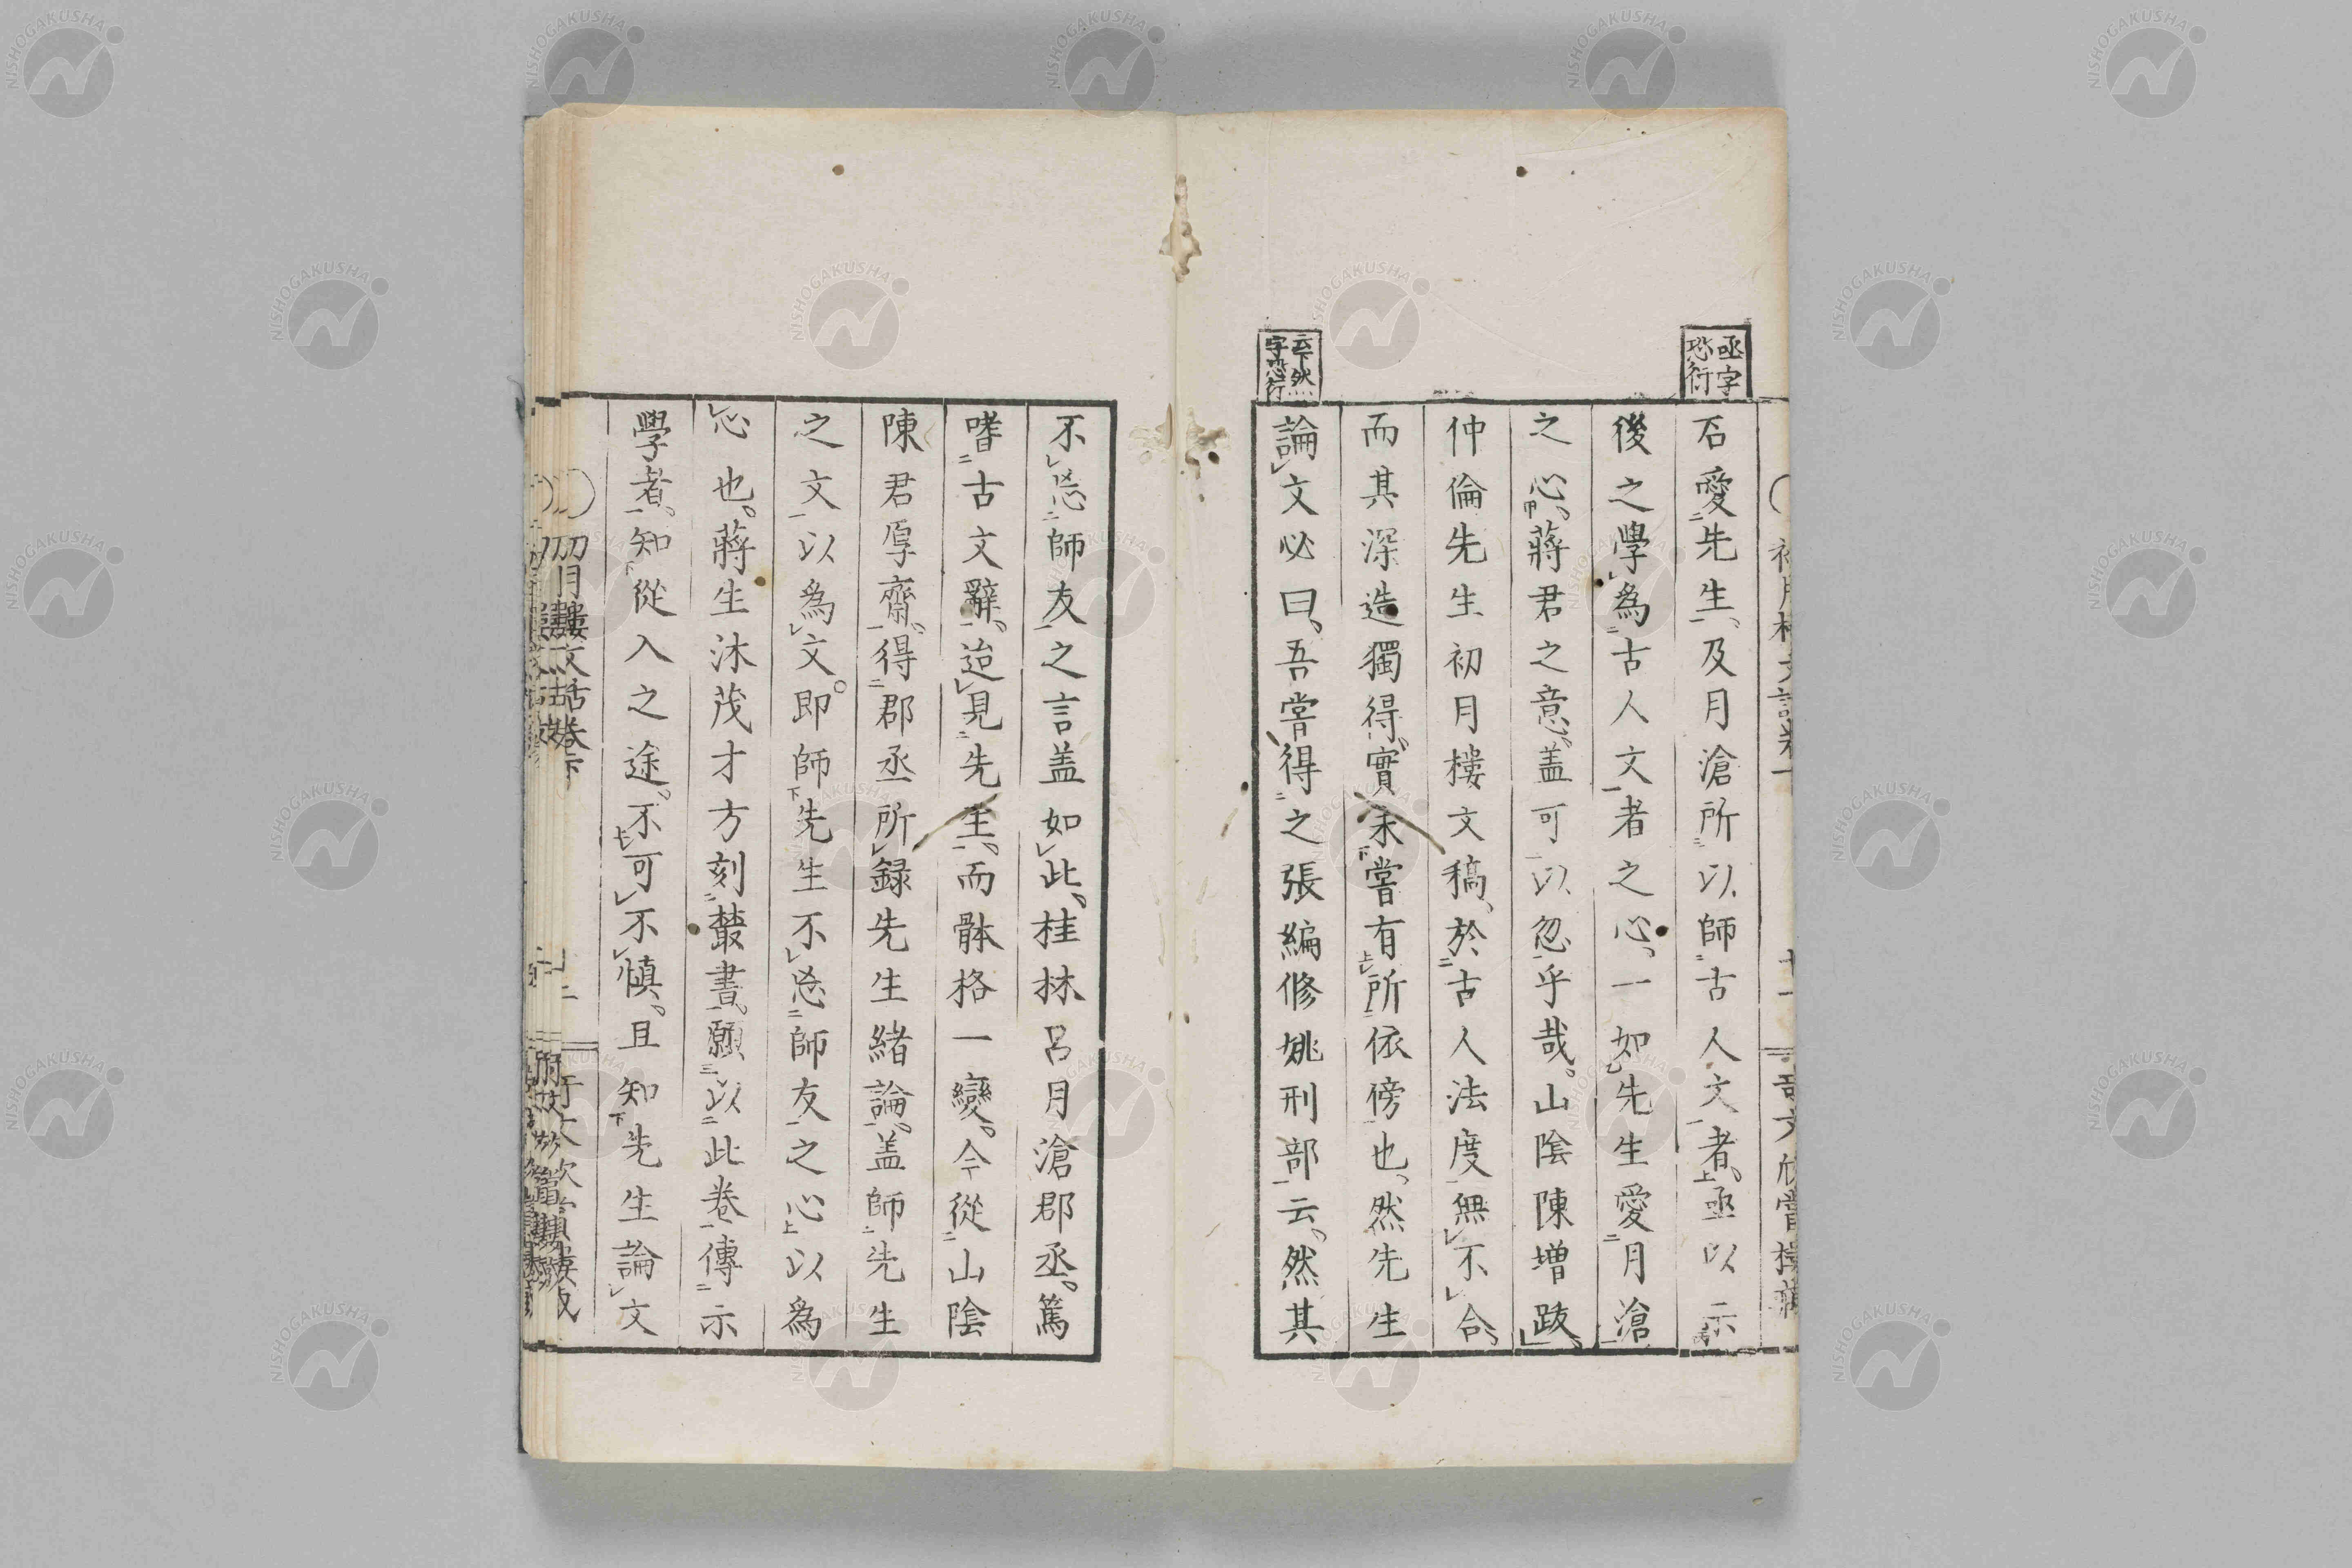 亟字
恐衍
石愛先生、及月滄所以師古人文者、亟以示
後之學為古人文者之心、一如先生愛月滄
之心、蔣君之意、蓋可以忽乎哉。山陰陳增跋、
仲倫先生初月樓文稿、於古人法度無不合、
而其深造獨得、實未嘗有所依傍也、然先生
論文必曰、吾嘗得之張編修姚刑部云、然其
云下然
字恐衍
不忘師友之言盖如此、桂林呂月滄郡丞、篤
嗜古文辭、迨見先生、而骵格一變。今從山陰
陳君厚齋、得郡丞所録先生緒論、盖師先生
之文以為文。即師先生不忘師友之心以為
心也。蔣生沐茂才方刻叢書、願以此卷傳示
學者、知從入之途、不可不慎、且知先生論文
NISHOGAKUSHA